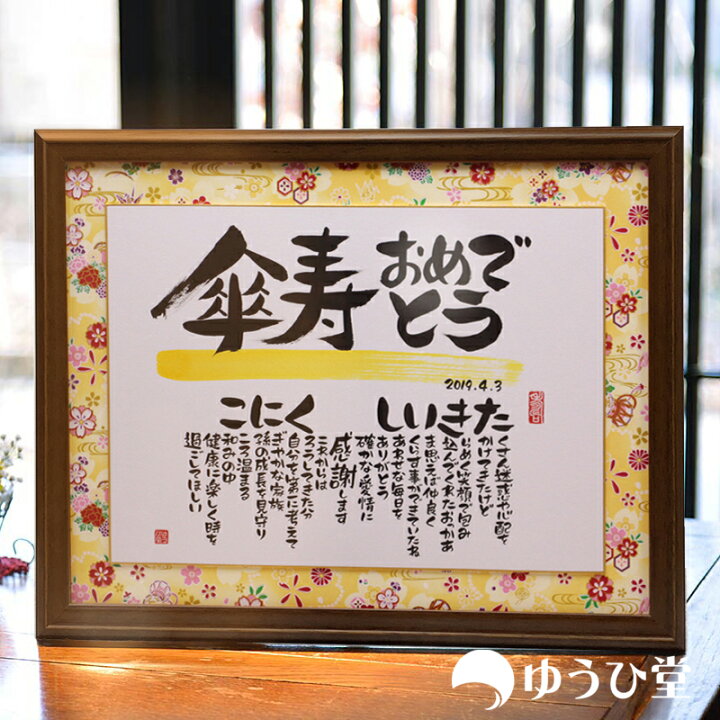 傘寿
おめで
とう
2019.4.3
たきいし
くさん迷惑や心配を
かけてきたけど
らめく笑顔で包み
込んでくれたおっかあ
ま思えば仲良く
くらす事ができていたね
あわせな毎日を
ありがとう
確かな愛情に
感謝します
これからは
くにこ
ろうしてきた分
自分を第一に考えて
ぎやかな家族
孫の成長を見守り
ころ温まる
和みのゆ
健康に楽しく時を
過ごしてほしい
ゆうひ堂